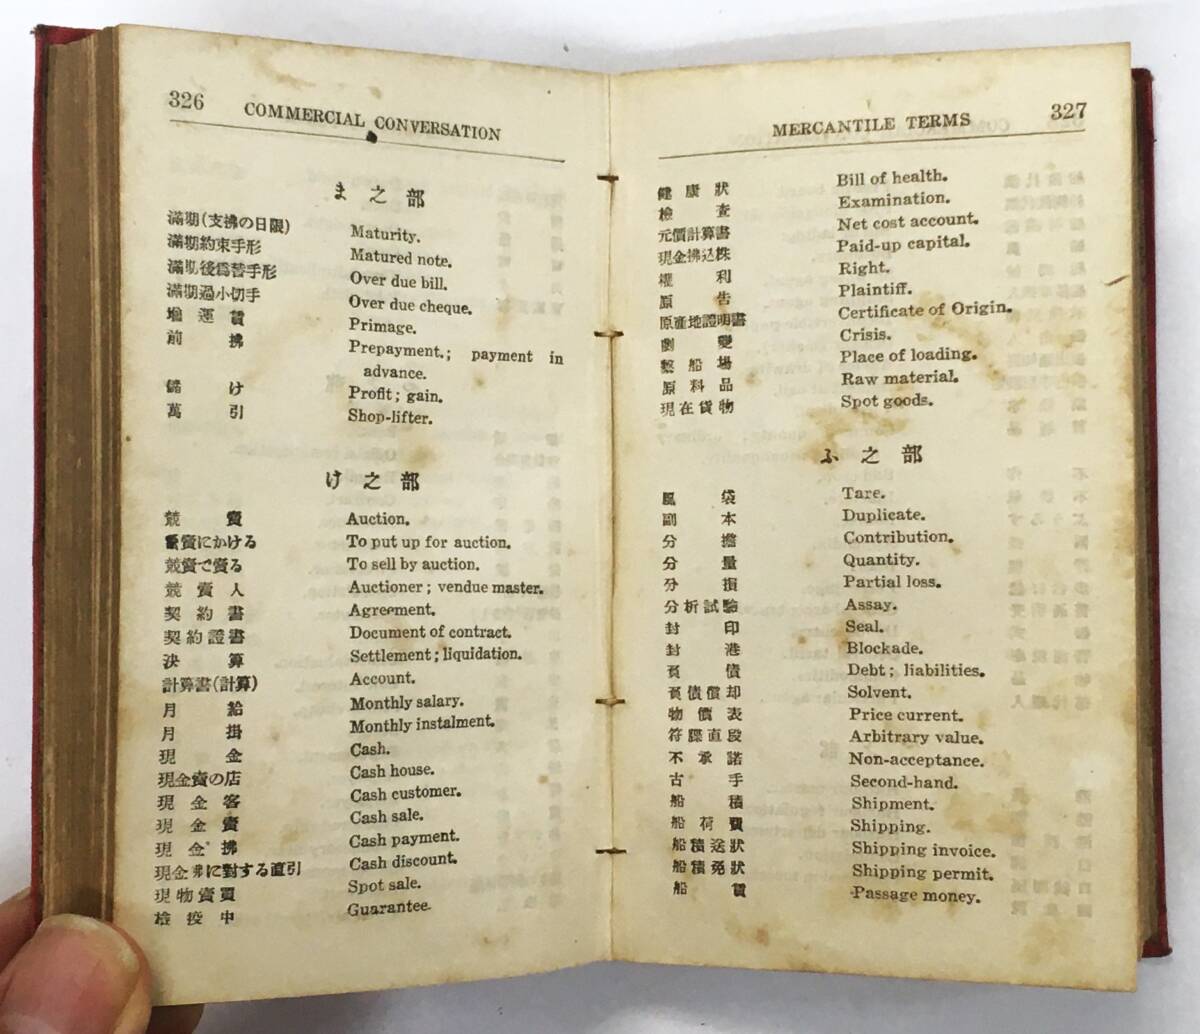 326 COMMERCIAL CONVERSATION
ま之部
滿期(支拂の日限) Maturity.
滿期約束手形 Matured note.
滿期後爲替手形 Over due bill.
滿期過小切手 Over due cheque.
增運賃 Primage.
前拂 Prepayment.; payment in
advance.
儲け Profit; gain.
萬引 Shop-lifter.
け之部
競賣 Auction.
競賣にかける To put up for auction.
競賣で賣る To sell by auction.
競賣人 Auctioner; vendue master.
契約書 Agreement.
契約證書 Document of contract.
決算 Settlement; liquidation.
計算書(計算) Account.
月給 Monthly salary.
月掛 Monthly instalment.
現金 Cash.
現金賣の店 Cash house.
現金客 Cash customer.
現金賣 Cash sale.
現金拂 Cash payment.
現金拂に對する直引 Cash discount.
現物賣買 Spot sale.
檢疫中 Guarantee.
MERCANTILE TERMS 327
健康狀 Bill of health.
檢查 Examination.
元價計算書 Net cost account.
現金拂込株 Paid-up capital.
權利 Right.
原告 Plaintiff.
原產地證明書 Certificate of Origin.
劇變 Crisis.
繫船場 Place of loading.
原料品 Raw material.
現在貨物 Spot goods.
ふ之部
風袋 Tare.
副本 Duplicate.
分擔 Contribution.
分量 Quantity.
分損 Partial loss.
分析試驗 Assay.
封印 Seal.
封港 Blockade.
負債 Debt; liabilities.
負債償却 Solvent.
物價表 Price current.
符牒直段 Arbitrary value.
不承諾 Non-acceptance.
古手 Second-hand.
船積 Shipment.
船荷費 Shipping.
船積送狀 Shipping invoice.
船積免狀 Shipping permit.
船賃 Passage money.